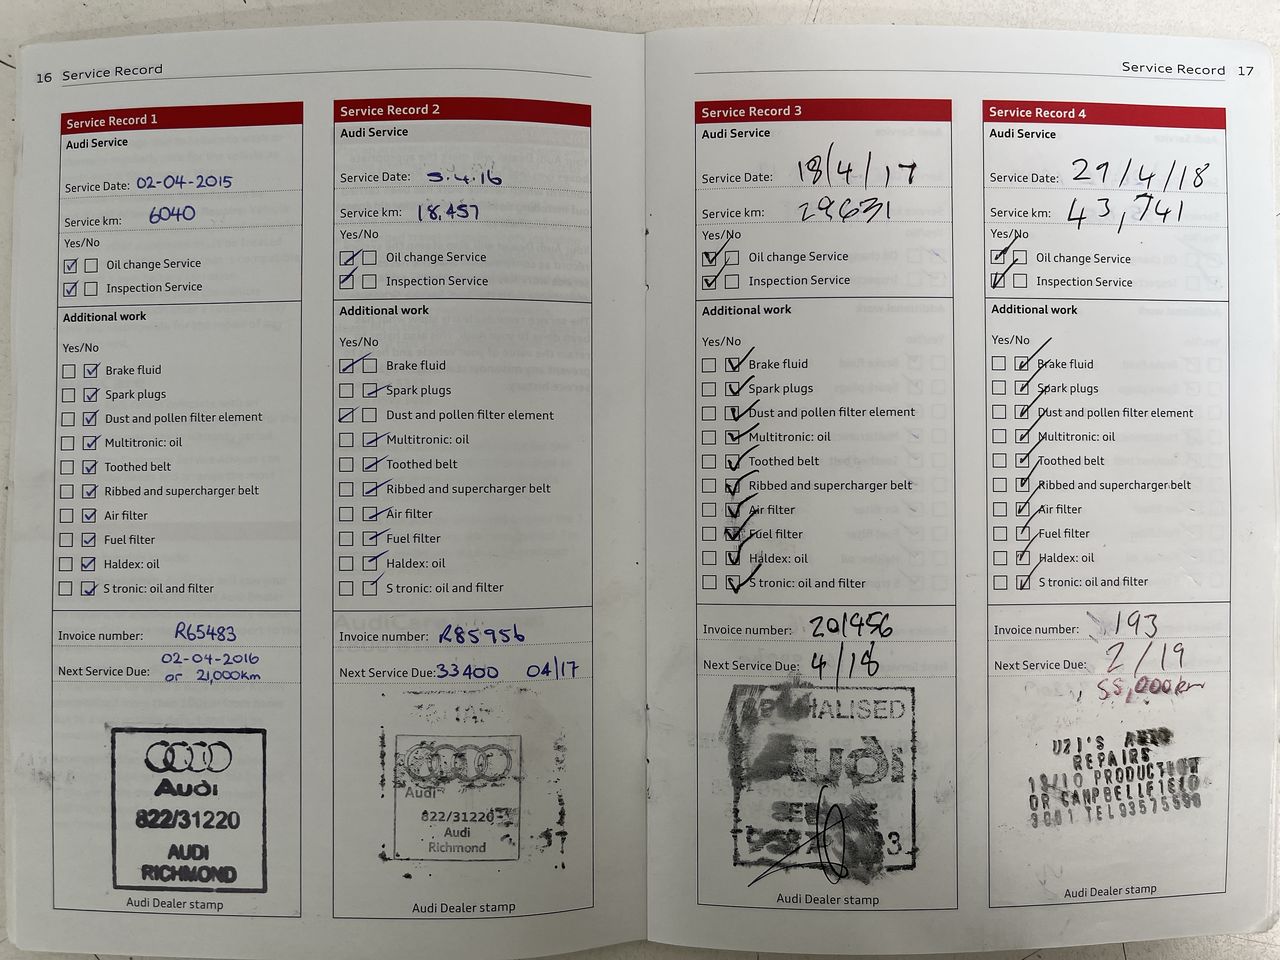 16 Service Record
Service Record 1
Audi Service
Service Date: 02-04-2015
Service km: 6040
Yes/No
Oil change Service
Inspection Service
Additional work
Yes/No
Brake fluid
Spark plugs
Dust and pollen filter element
Multitronic: oil
Toothed belt
Ribbed and supercharger belt
Air filter
Fuel filter
Haldex: oil
S tronic: oil and filter
Invoice number: R65483
Next Service Due: 02-04-2016
or 21,000km
Audi
822/31220
AUDI
RICHMOND
Audi Dealer stamp
Service Record 2
Audi Service
Service Date: 5.4.16
Service km: 18,457
Yes/No
Oil change Service
Inspection Service
Additional work
Yes/No
Brake fluid
Spark plugs
Dust and pollen filter element
Multitronic: oil
Toothed belt
Ribbed and supercharger belt
Air filter
Fuel filter
Haldex: oil
S tronic: oil and filter
Invoice number: R85956
Next Service Due: 33400 04/17
Audi
822/31220
Audi
Richmond
Audi Dealer stamp
Service Record 17
Service Record 3
Audi Service
Service Date: 18/4/17
Service km: 29631
Yes/No
Oil change Service
Inspection Service
Additional work
Yes/No
Brake fluid
Spark plugs
Dust and pollen filter element
Multitronic: oil
Toothed belt
Ribbed and supercharger belt
Air filter
Fuel filter
Haldex: oil
S tronic: oil and filter
Invoice number: 201956
Next Service Due: 4/18
Audi
Audi Dealer stamp
Service Record 4
Audi Service
Service Date: 29/4/18
Service km: 43,741
Yes/No
Oil change Service
Inspection Service
Additional work
Yes/No
Brake fluid
Spark plugs
Dust and pollen filter element
Multitronic: oil
Toothed belt
Ribbed and supercharger belt
Air filter
Fuel filter
Haldex: oil
S tronic: oil and filter
Invoice number: 193
Next Service Due: 2/19
55,000km
UZI'S AUTO
REPAIRS
PRODUCTION
DR CAMPBELLFIELD
TEL 93575590
Audi Dealer stamp